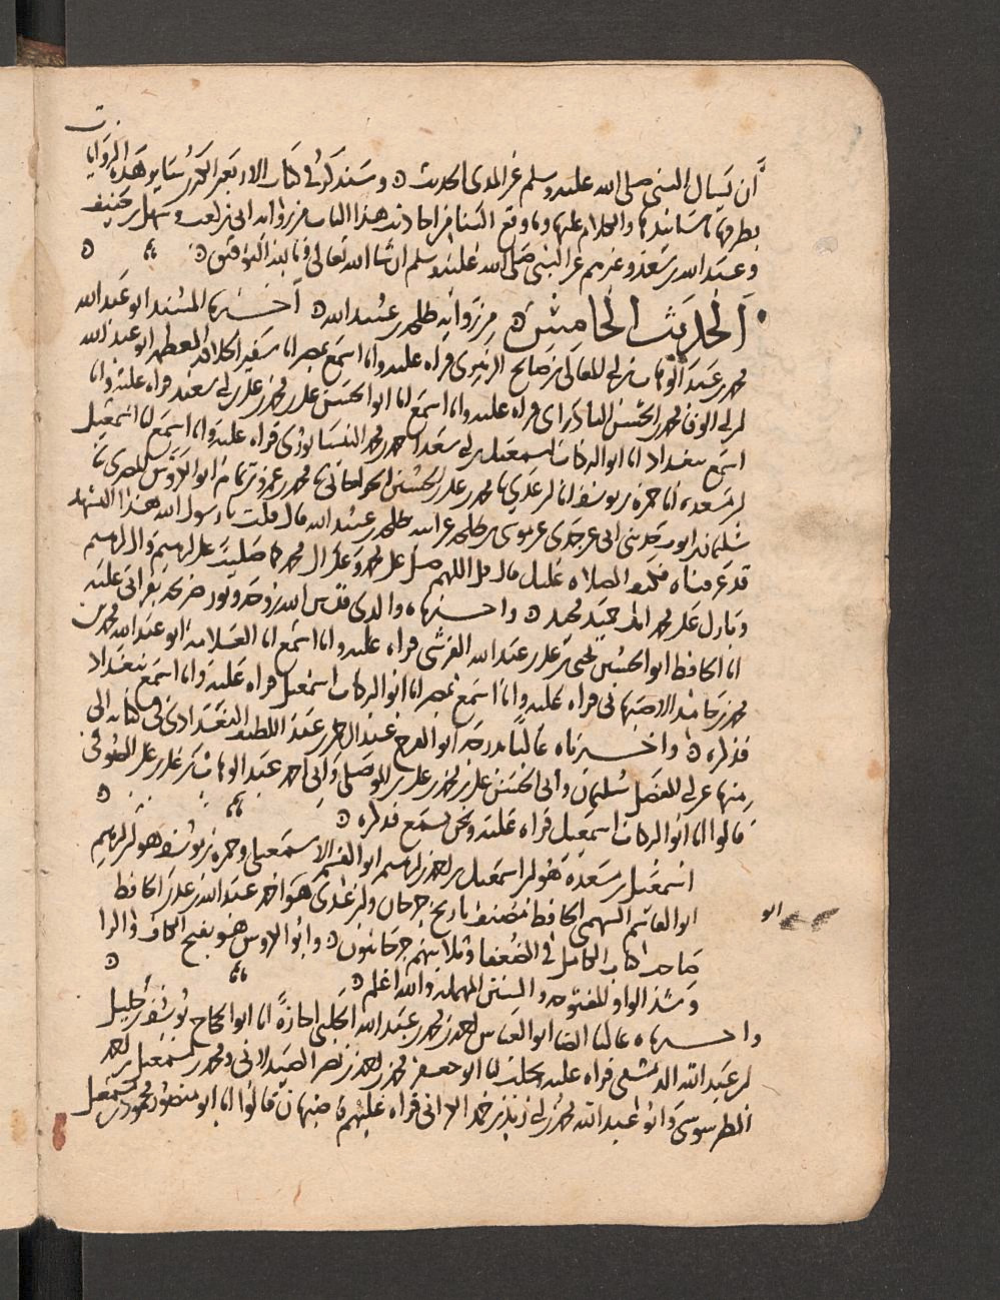 ان يسال النبي صلى الله عليه وسلم عن المدي الحديث ه وسنذكر في كتاب الاربعين الكبرى سايرهذه الروايات
بطرقها باسانيدها والكلام عليها وما وقع الينا من احاديث هذا الباب من رواية ابي بن كعب وسهل بن حنيف
وعبد الله بن سعد وغيرهم عن النبي صلى الله عليه وسلم ان شا الله تعالى وبالله التوفيق ه
الحديث الخامس ه من رواية طلحة بن عبيد الله ه اخبرنا المسند ابو عبد الله
محمد بن عبد الوهاب بن ابي المعالي بن صالح قراه عليه وانا اسمع بمصر انا سفير الخلافة المعظم ابو عبد الله
ابن ابي الوفا محمد بن الحسن البادراي قراه عليه وانا اسمع انا ابو الحسن علي بن محمد بن علي بن ابي سعيد قراه عليه وانا
اسمع ببغداد انا ابو البركات اسمعيل بن ابي سعد احمد بن محمد النيسابوري قراه عليه وانا اسمع انا اسمعيل
ابن مسعدة انا حمزة بن يوسف انا ابن عدي ثنا محمد بن علي بن الحسين ثنا محمد بن عمرو بن تمام ثنا ابو الاوس المصري ثنا
سليمان بن ايوب حدثني ابي عن جدي عن موسى بن طلحة عن ابيه طلحة بن عبيد الله قال قلت يا رسول الله هذا التشهد
قد عرفناه فكيف الصلاه عليك قال قل اللهم صل على محمد وعلى ال محمد كما صليت على ابرهيم وال ابرهيم
وبارك على محمد انك حميد مجيد ه واخبرناه والدي قدس الله روحه ونور ضريحه بقراتي عليه
انا الحافظ ابو الحسين يحيى بن علي بن عبد الله القرشي قراه عليه وانا اسمع انا العلامة ابو عبد الله محمد بن
محمد بن حامد الاصبهاني قراه عليه وانا اسمع بمصر انا ابو البركات اسمعيل قراه عليه وانا اسمع ببغداد
فذكره ه واخبرناه عاليا بدرجة ابو الفرج عبد الرحمن بن عبد اللطيف البغدادي في كتابه الي
منها عن ابي الفضل سليمن وابي الحسن علي بن محمد بن علي الموصلي وابي احمد عبد الوهاب بن علي بن علي الصوفي
قالوا انا ابو البركات اسمعيل قراه عليه ونحن نسمع فذكره ه
اسمعيل بن مسعدة هو ابن اسمعيل بن احمد بن ابرهيم ابو القسم الاسمعيلي وحمزة بن يوسف هو ابن ابرهيم
ابو القاسم السهمي الحافظ مصنف تاريخ جرجان وابن عدي هو احمد عبد الله بن عدي الحافظ
ابو
صاحب كتاب الكامل في الضعفا وثلاثتهم جرجانيون ه وابو الاوس هو بفتح الكاف والرا
وشد الواو المفتوحه والسين المهمله والله اعلم ه
واخبرناه عاليا ايضا ابو العباس احمد بن محمد بن عبد الله الحلبي اجازة انا ابو الحجاج يوسف بن خليل
ابن عبد الله الدمشقي قراه عليه بحلب انا ابو جعفر محمد بن احمد بن نصر الصيدلاني ومحمد بن اسمعيل بن احمد
الطرسوسي وابو عبد الله محمد بن ابي زيد بن حمد الكراني قراه عليهم باصبهان قالوا انا ابو منصور محمود بن اسمعيل